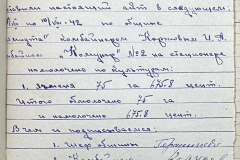 ставили настоящий акт в следующем:
по 10/VIII-42 по общине
комбайнером Корновым И. А.
"Коммунар" №2 на стационаре
намолочено по культурам:
1. ячменя 75 га 675.8 цент.
Итого обмолочено 75 га
и намолочено 675.8 цент.
В чем и подписываемся:
1. Шеф общины